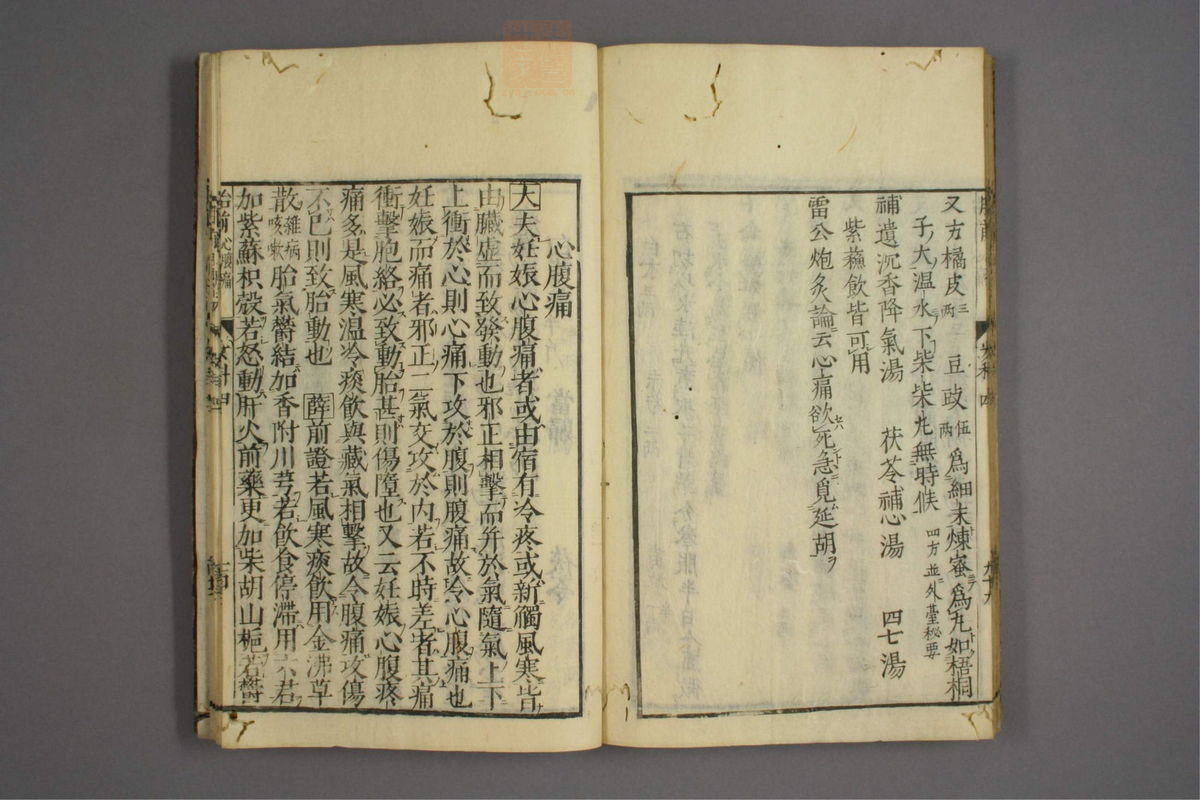 又方橘皮三両 豆豉伍両爲細末煉蜜爲丸如梧桐
子大温水下柒柒丸無時候 四方並外臺秘要
補遺沉香降氣湯 茯苓補心湯 四七湯
紫蘓飲皆可用
雷公炮炙論云心痛欲死急覓延胡ヲ
心腹痛
大夫妊娠心腹痛者或由宿有冷疼或新觸風寒皆
由臟虛而致發動也邪正相擊而并於氣隨氣上下
上衝於心則心痛下攻於腹則腹痛故令心腹痛也
妊娠而痛者邪正二氣交攻於内若不時差者其痛
衝擊胞絡必致動胎甚則傷隨也又云妊娠心腹疼
痛多是風寒温冷痰飲與藏氣相擊故令腹痛攻傷
不已則致胎動也 薛前證若風寒痰飲用金沸草
散雜病咳嗽胎氣欝結加香附川芎若飲食停滯用六君
加紫蘇枳殻若怒動肝火前藥更加柴胡山梔若欝
胎前心腹痛